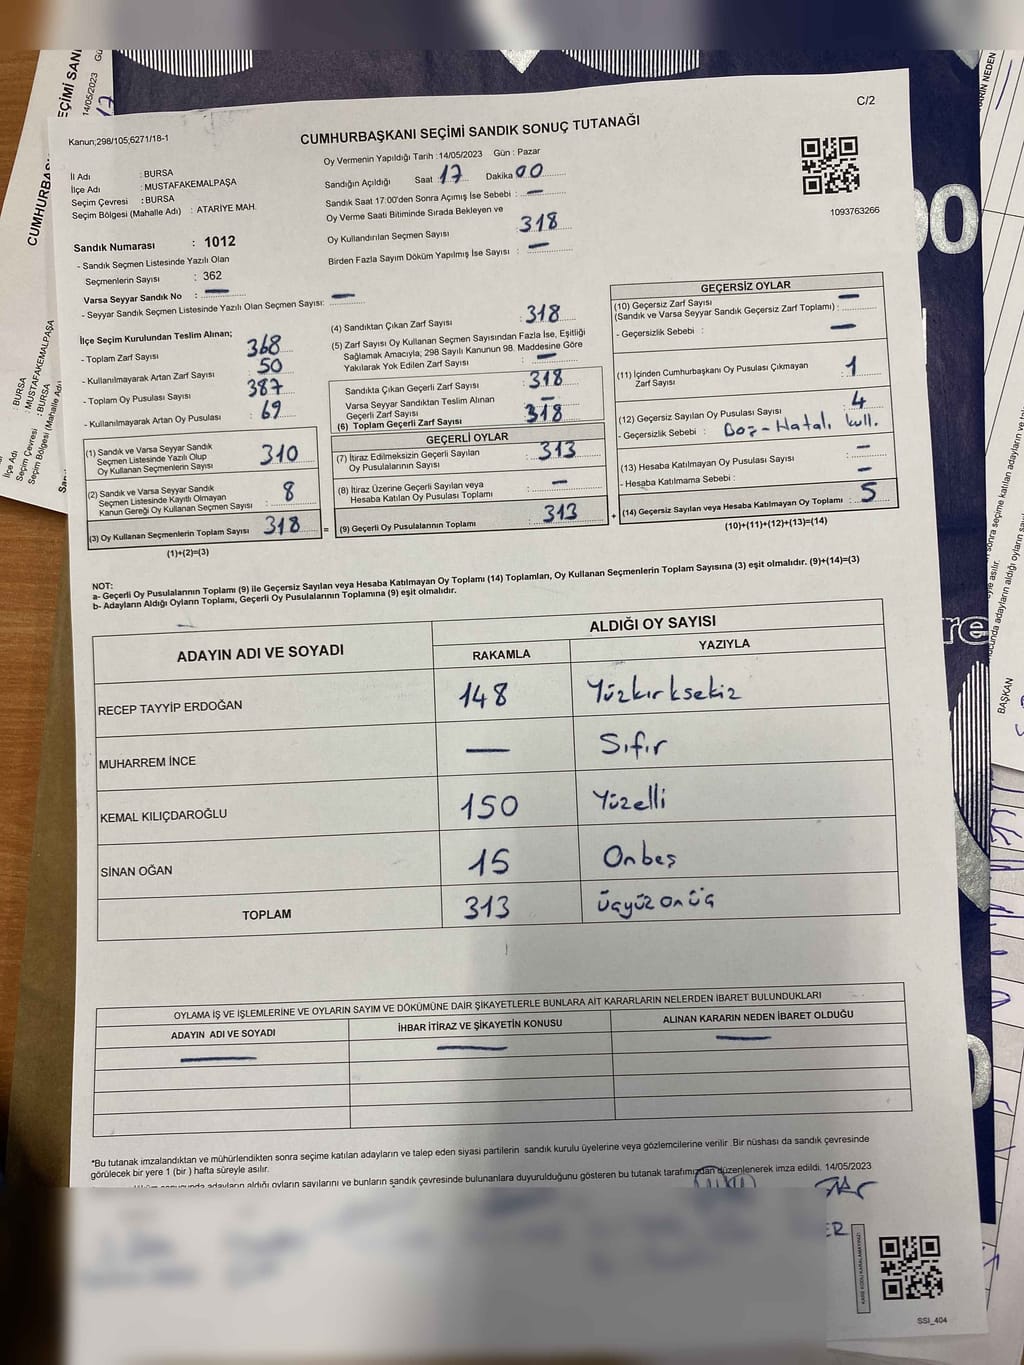 C/2
Kanun;298/105;6271/18-1
CUMHURBAŞKANI SEÇİMİ SANDIK SONUÇ TUTANAĞI
Oy Vermenin Yapıldığı Tarih :14/05/2023 Gün : Pazar
İl Adı : BURSA
İlçe Adı : MUSTAFAKEMALPAŞA
Seçim Çevresi : BURSA
Seçim Bölgesi (Mahalle Adı) : ATARİYE MAH.
Sandığın Açıldığı Saat 17 Dakika 00
Sandık Saat 17:00'den Sonra Açımış İse Sebebi : —
Oy Verme Saati Bitiminde Sırada Bekleyen ve
Oy Kullandırılan Seçmen Sayısı : 318
Birden Fazla Sayım Döküm Yapılmış İse Sayısı : —
1093763266
Sandık Numarası : 1012
- Sandık Seçmen Listesinde Yazılı Olan
Seçmenlerin Sayısı : 362
Varsa Seyyar Sandık No : —
- Seyyar Sandık Seçmen Listesinde Yazılı Olan Seçmen Sayısı: —
İlçe Seçim Kurulundan Teslim Alınan;
- Toplam Zarf Sayısı 368
- Kullanılmayarak Artan Zarf Sayısı : 50
- Toplam Oy Pusulası Sayısı 387
- Kullanılmayarak Artan Oy Pusulası : 69
(1) Sandık ve Varsa Seyyar Sandık
Seçmen Listesinde Yazılı Olup
Oy Kullanan Seçmenlerin Sayısı 310
(2) Sandık ve Varsa Seyyar Sandık
Seçmen Listesinde Kayıtlı Olmayan
Kanun Gereği Oy Kullanan Seçmen Sayısı : 8
(3) Oy Kullanan Seçmenlerin Toplam Sayısı 318 =
(1)+(2)=(3)
(4) Sandıktan Çıkan Zarf Sayısı : 318
(5) Zarf Sayısı Oy Kullanan Seçmen Sayısından Fazla İse, Eşitliği
Sağlamak Amacıyla; 298 Sayılı Kanunun 98. Maddesine Göre
Yakılarak Yok Edilen Zarf Sayısı : —
Sandıkta Çıkan Geçerli Zarf Sayısı : 318
Varsa Seyyar Sandıktan Teslim Alınan
Geçerli Zarf Sayısı : —
(6) Toplam Geçerli Zarf Sayısı : 318
GEÇERLİ OYLAR
(7) İtiraz Edilmeksizin Geçerli Sayılan
Oy Pusulalarının Sayısı : 313
(8) İtiraz Üzerine Geçerli Sayılan veya
Hesaba Katılan Oy Pusulası Toplamı : —
(9) Geçerli Oy Pusulalarının Toplamı : 313 +
GEÇERSİZ OYLAR
(10) Geçersiz Zarf Sayısı —
(Sandık ve Varsa Seyyar Sandık Geçersiz Zarf Toplamı) :
- Geçersizlik Sebebi : —
(11) İçinden Cumhurbaşkanı Oy Pusulası Çıkmayan
Zarf Sayısı : 1
(12) Geçersiz Sayılan Oy Pusulası Sayısı : 4
- Geçersizlik Sebebi : Boş-Hatalı kull.
(13) Hesaba Katılmayan Oy Pusulası Sayısı : —
- Hesaba Katılmama Sebebi : —
(14) Geçersiz Sayılan veya Hesaba Katılmayan Oy Toplamı : 5
(10)+(11)+(12)+(13)=(14)
NOT:
a- Geçerli Oy Pusulalarının Toplamı (9) ile Geçersiz Sayılan veya Hesaba Katılmayan Oy Toplamı (14) Toplamları, Oy Kullanan Seçmenlerin Toplam Sayısına (3) eşit olmalıdır. (9)+(14)=(3)
b- Adayların Aldığı Oyların Toplamı, Geçerli Oy Pusulalarının Toplamına (9) eşit olmalıdır.
ADAYIN ADI VE SOYADI
ALDIĞI OY SAYISI
RAKAMLA YAZIYLA
RECEP TAYYİP ERDOĞAN 148 Yüzkırksekiz
MUHARREM İNCE — Sıfır
KEMAL KILIÇDAROĞLU 150 Yüzelli
SİNAN OĞAN 15 Onbeş
TOPLAM 313 üçyüzonüç
OYLAMA İŞ VE İŞLEMLERİNE VE OYLARIN SAYIM VE DÖKÜMÜNE DAİR ŞİKAYETLERLE BUNLARA AİT KARARLARIN NELERDEN İBARET BULUNDUKLARI
ADAYIN ADI VE SOYADI İHBAR İTİRAZ VE ŞİKAYETİN KONUSU ALINAN KARARIN NEDEN İBARET OLDUĞU
— — —
*Bu tutanak imzalandıktan ve mühürlendikten sonra seçime katılan adayların ve talep eden siyasi partilerin sandık kurulu üyelerine veya gözlemcilerine verilir .Bir nüshası da sandık çevresinde
görülecek bir yere 1 (bir ) hafta süreyle asılır.
adayların aldığı oyların sayılarını ve bunların sandık çevresinde bulunanlara duyurulduğunu gösteren bu tutanak tarafımızdan düzenlenerek imza edildi. 14/05/2023
SSI_404